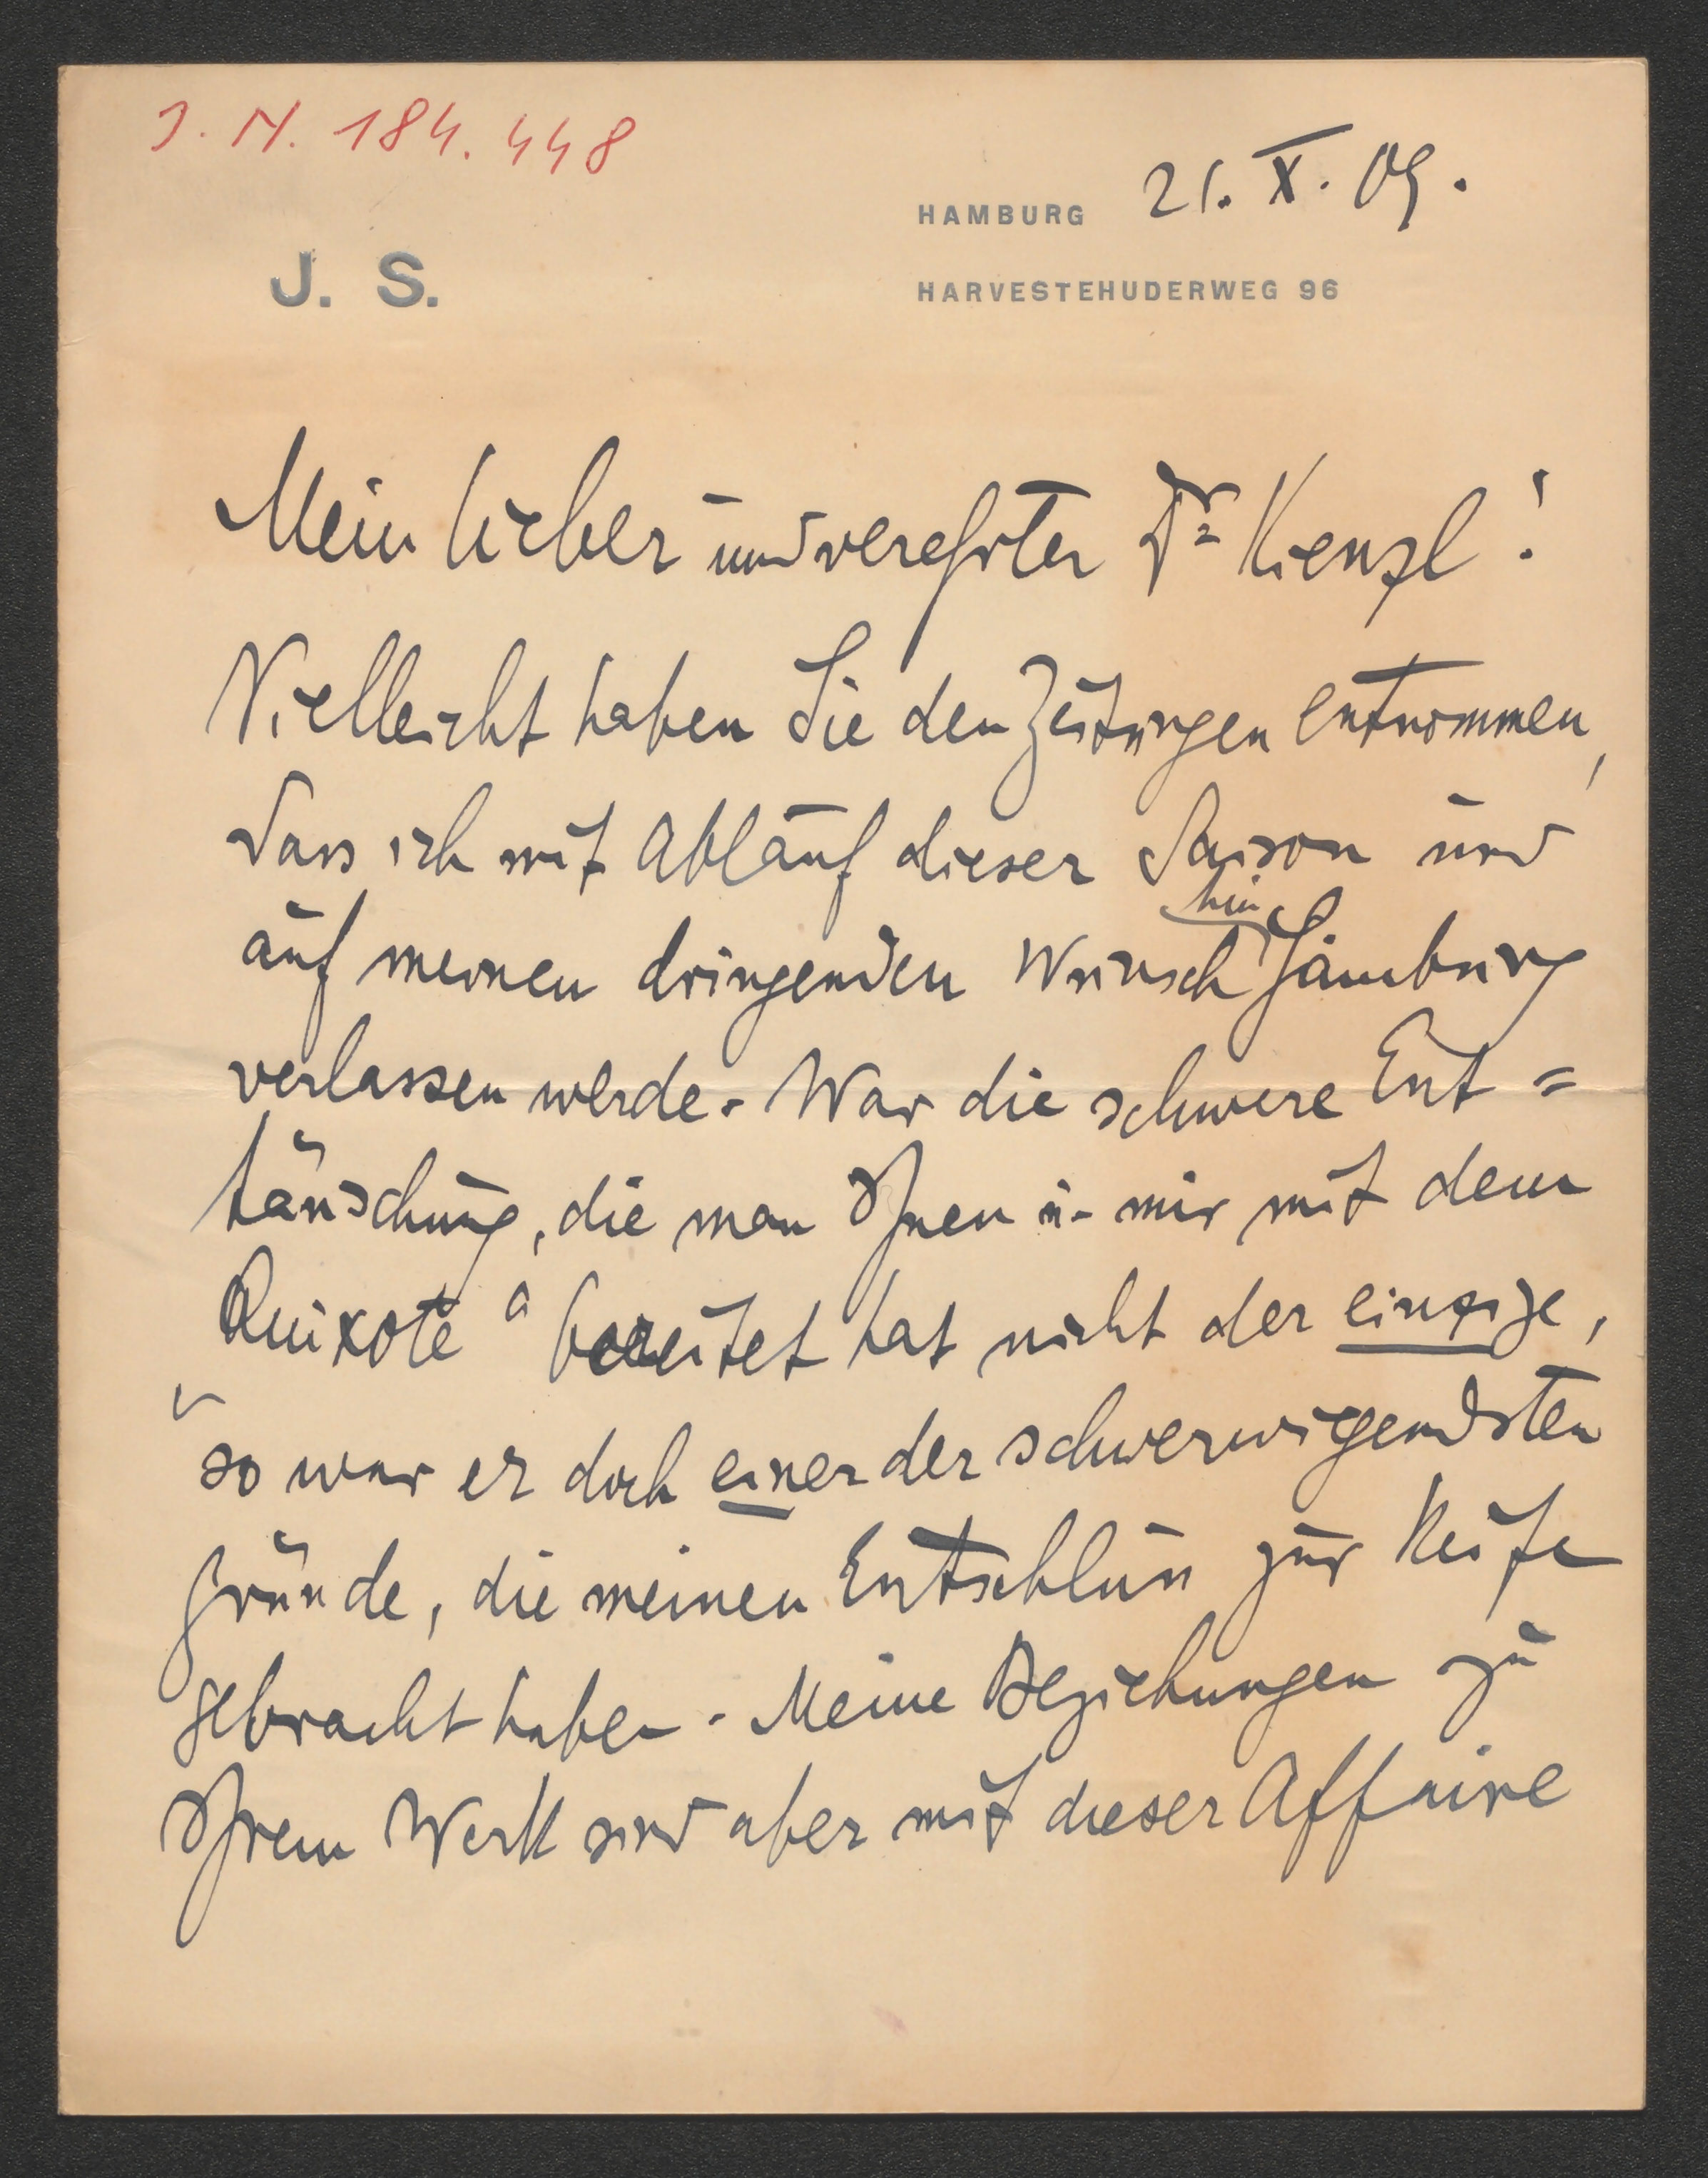 J. N. 184.448
HAMBURG 21. X. 09.
J. S.
HARVESTEHUDERWEG 96
Mein lieber und verehrter Dr Kienzl!
Vielleicht haben Sie den Zeitungen entnommen,
dass ich mit Ablauf dieser Saison und
hin
auf meinen dringenden Wunsch Hamburg
verlassen werde. War die schwere Ent=
täuschung, die man Ihnen u. mir mit dem
Quixote bereitet hat nicht der einzige,
so war er doch einer der schwerwiegendsten
Gründe, die meinen Entschluss zur Reife
gebracht haben. Meine Beziehungen zu
Ihrem Werk sind aber mit dieser Affaire